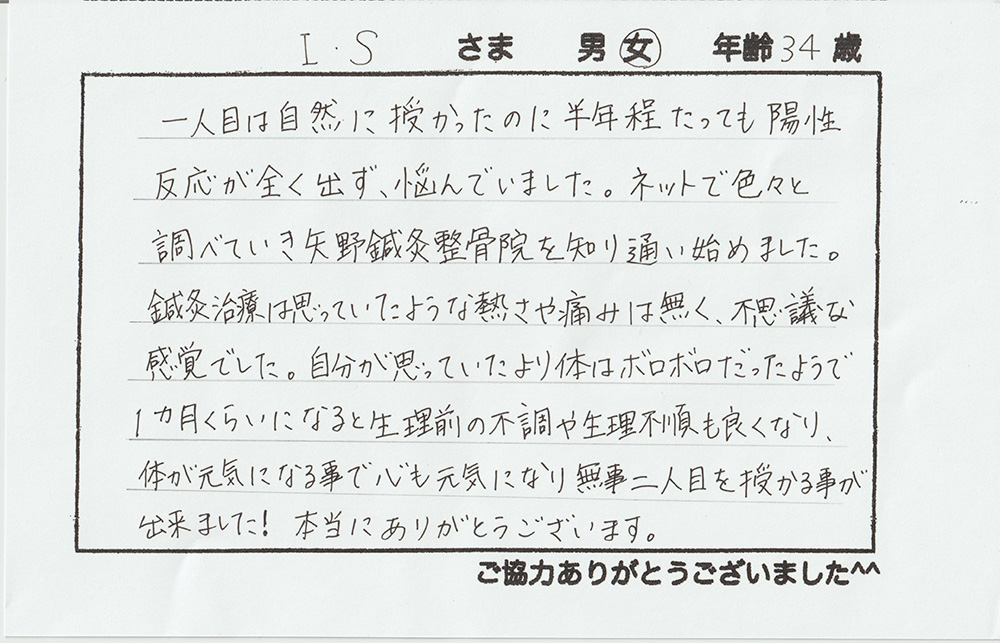 I・S さま 男 女 年齢 34 歳
一人目は自然に授かったのに半年程たっても陽性
反応が全く出ず、悩んでいました。ネットで色々と
調べていき矢野鍼灸整骨院を知り通い始めました。
鍼灸治療は思っていたような熱さや痛みは無く、不思議な
感覚でした。自分が思っていたより体はボロボロだったようで
1カ月くらいになると生理前の不調や生理不順も良くなり、
体が元気になる事で心も元気になり無事二人目を授かる事が
出来ました!本当にありがとうございます。
ご協力ありがとうございました^^